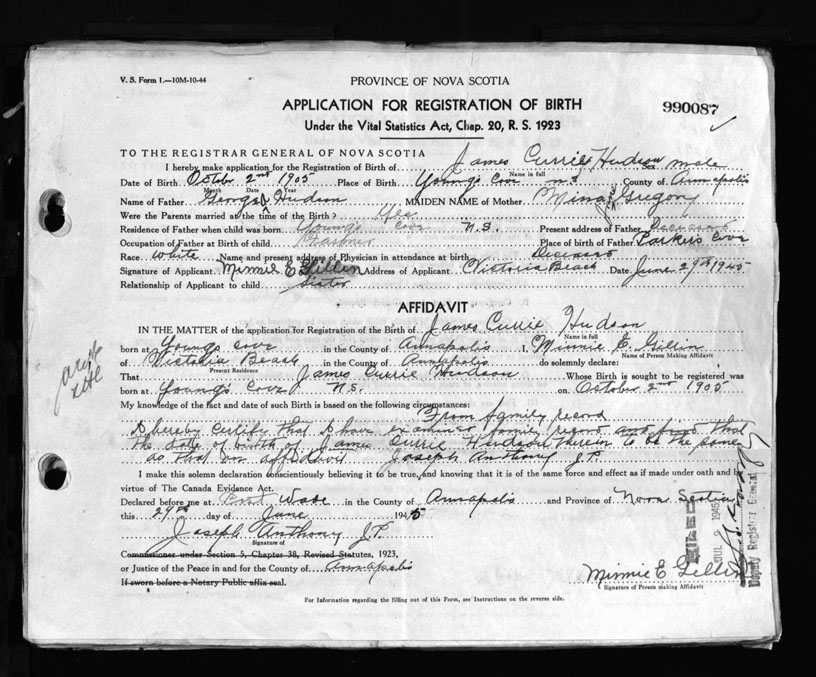 V. S. Form 1.—10M-10-44
PROVINCE OF NOVA SCOTIA
APPLICATION FOR REGISTRATION OF BIRTH
990087
Under the Vital Statistics Act, Chap. 20, R. S. 1923
TO THE REGISTRAR GENERAL OF NOVA SCOTIA
I hereby make application for the Registration of Birth of James Currie Hudson Sex male
Name in full
Date of Birth Octob 2nd 1905 Place of Birth Youngs Cove N S County of Annapolis
Month Date Year
Name of Father George Hudson MAIDEN NAME of Mother Mina Gregory
Were the Parents married at the time of the Birth? Yes
Residence of Father when child was born Youngs Cove N.S. Present address of Father Deceased
Occupation of Father at Birth of child Place of birth of Father Parkers Cove
Race White Name and present address of Physician in attendance at birth Deceased
Signature of Applicant Minnie E Gillin Address of Applicant Victoria Beach Date June 29th 1945
Relationship of Applicant to child Sister
AFFIDAVIT
IN THE MATTER of the application for Registration of the Birth of James Currie Hudson
Name in full
born at Youngs Cove in the County of Annapolis I, Minnie E. Gillin
Name of Person Making Affidavit
of Victoria Beach in the County of Annapolis do solemnly declare:
Present Residence
That James Currie Hudson Whose Birth is sought to be registered was
born at Youngs Cove N.S. on October 2nd 1905
My knowledge of the fact and date of such Birth is based on the following circumstances:
From family record
I hereby certify that I have examined family record and find that
the date of birth of James Currie Hudson therein to be the same
as that on affidavit Joseph Anthony J.P.
I make this solemn declaration conscientiously believing it to be true, and knowing that it is of the same force and effect as if made under oath and in
virtue of The Canada Evidence Act.
Declared before me at Port Wade in the County of Annapolis and Province of Nova Scotia
this 29th day of June 1945
Joseph Anthony J.P.
Signature of
Commissioner under Section 5, Chapter 38, Revised Statutes, 1923,
or Justice of the Peace in and for the County of Annapolis
If sworn before a Notary Public affix seal.
Minnie E Gillin
Signature of Person making Affidavit
For Information regarding the filling out of this Form, see Instructions on the reverse side.
FILED
JUL 1945
Deputy Registrar General